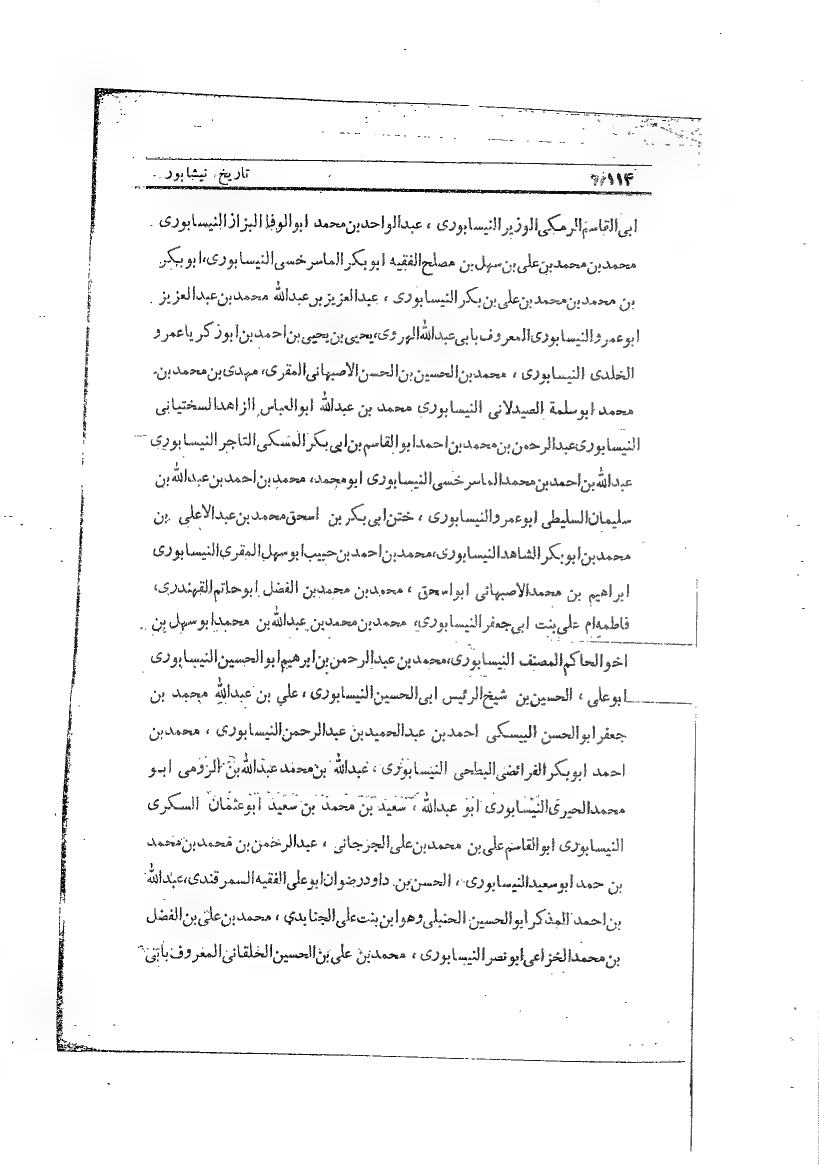 ۱۱۴
تاریخ نیشابور
ابی القاسم الرمکی الوزیر النیسابوری ، عبدالواحد بن محمد ابوالوفا البزاز النیسابوری
محمد بن محمد بن علی بن سهل بن مصلح الفقیه ابو بکر الماسرخسی النیسابوری، ابوبکر
بن محمد بن محمد بن علی بن بکر النیسابوری ، عبدالعزیز بن عبدالله محمد بن عبدالعزیز
ابوعمرو النیسابوری المعروف بابی عبدالله الهروی، یحیی بن یحیی بن احمد بن ابوزکریا عمرو
الخلدی النیسابوری ، محمد بن الحسین بن الحسن الاصبهانی المقری، مهدی بن محمد بن
محمد ابوسلمة الصیدلانی النیسابوری محمد بن عبدالله ابوالعباس الزاهد السختیانی
النیسابوری عبدالرحمن بن محمد بن احمد ابوالقاسم بن ابی بکر المسکی التاجر النیسابوری
عبدالله بن احمد بن محمد الماسرخسی النیسابوری ابومحمد، محمد بن احمد بن عبدالله بن
سلیمان السلیطی ابوعمرو النیسابوری ، ختن ابی بکر بن اسحق محمد بن عبدالاعلی بن
محمد بن ابوبکر الشاهد النیسابوری، محمد بن احمد بن حبیب ابوسهل المقری النیسابوری
ابراهیم بن محمد الاصبهانی ابواسحق ، محمد بن محمد بن الفضل ابوحاتم القهندری،
فاطمه ام علی بنت ابی جعفر النیسابوری، محمد بن محمد بن عبدالله بن محمد ابوسهل بن
اخو الحاکم المصنف النیسابوری، محمد بن عبدالرحمن بن ابرهیم ابوالحسین النیسابوری
ابوعلی ، الحسین بن شیخ الرئیس ابی الحسین النیسابوری ، علی بن عبدالله محمد بن
جعفر ابوالحسن البیسکی احمد بن عبدالحمید بن عبدالرحمن النیسابوری ، محمد بن
احمد ابوبکر الفرائضی البطحی النیسابوری ، عبدالله بن محمد عبدالله بن الزومی ابو
محمد الحیری النیسابوری ابو عبدالله ، سعید بن محمد بن سعید ابوعثمان السکری
النیسابوری ابوالقاسم علی بن محمد بن علی الجرجانی ، عبدالرحمن بن محمد بن محمد
بن حمد ابوسعید النیسابوری ، الحسن بن داود رضوان ابوعلی الفقیه السمرقندی، عبدالله
بن احمد المذکر ابوالحسین الحنبلی وهو ابن بنت علی الجنابدی ، محمد بن علی بن الفضل
بن محمد الخزاعی ابونصر النیسابوری ، محمد بن علی بن الحسین الخلقانی المعروف بابی